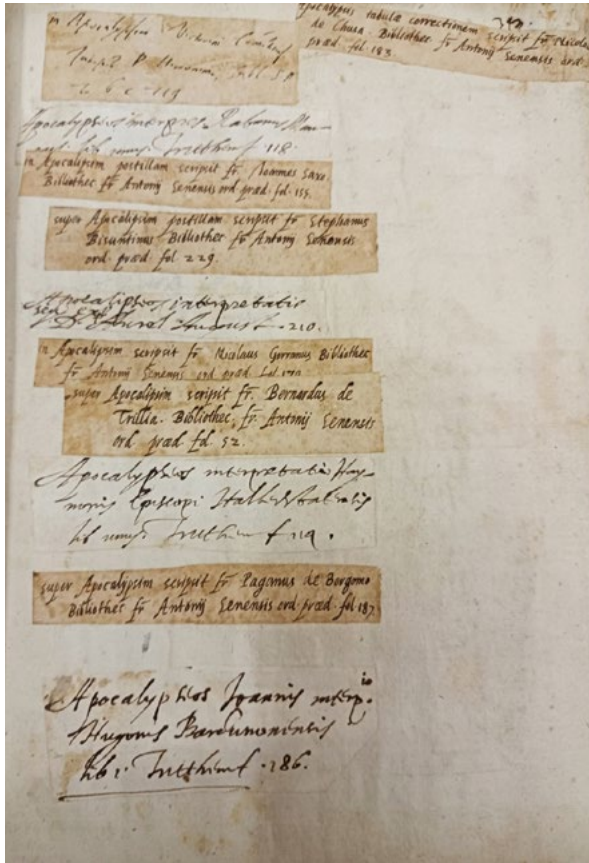 in Apocalypsim
P
6 c 119
Apocalypsis tabulæ correctionem scripsit fr. Nicolaus
de Chusa. Bibliothec. fr. Antonij Senensis ord.
præd. fol. 183.
Apocalypseos interpres Rabanus Mau-
Tritthim f 118.
in Apocalipsim postillam scripsit fr. Ioannes Saxo.
Bibliothec. fr. Antonij Senensis ord. præd. fol. 155.
super Apocalipsim postillam scripsit fr Stephanus
Bisuntinus Bibliothec. fr. Antonij Senensis
ord. præd. fol 229.
Apocalipseos interpretatio
D. Aurel August. 210.
in Apocalipsim scripsit fr. Nicolaus Gorranus Bibliothec
fr. Antonij Senensis ord præd. fol.
super Apocalipsim scripsit fr. Bernardus de
Trillia. Bibliothec. fr. Antonij Senensis
ord præd fol. 52.
Apocalypseos interpretatio Hay-
monis Episcopi Halberstatensis
lib Tritthim f 119.
super Apocalypsim scripsit fr Paganus de Bergomo
Bibliothec fr Antonij Senensis ord. præd. fol 187
Apocalypseos Joannis interp.io
Hugonis Barchinonensis
lib 1. Tritthim f. 186.